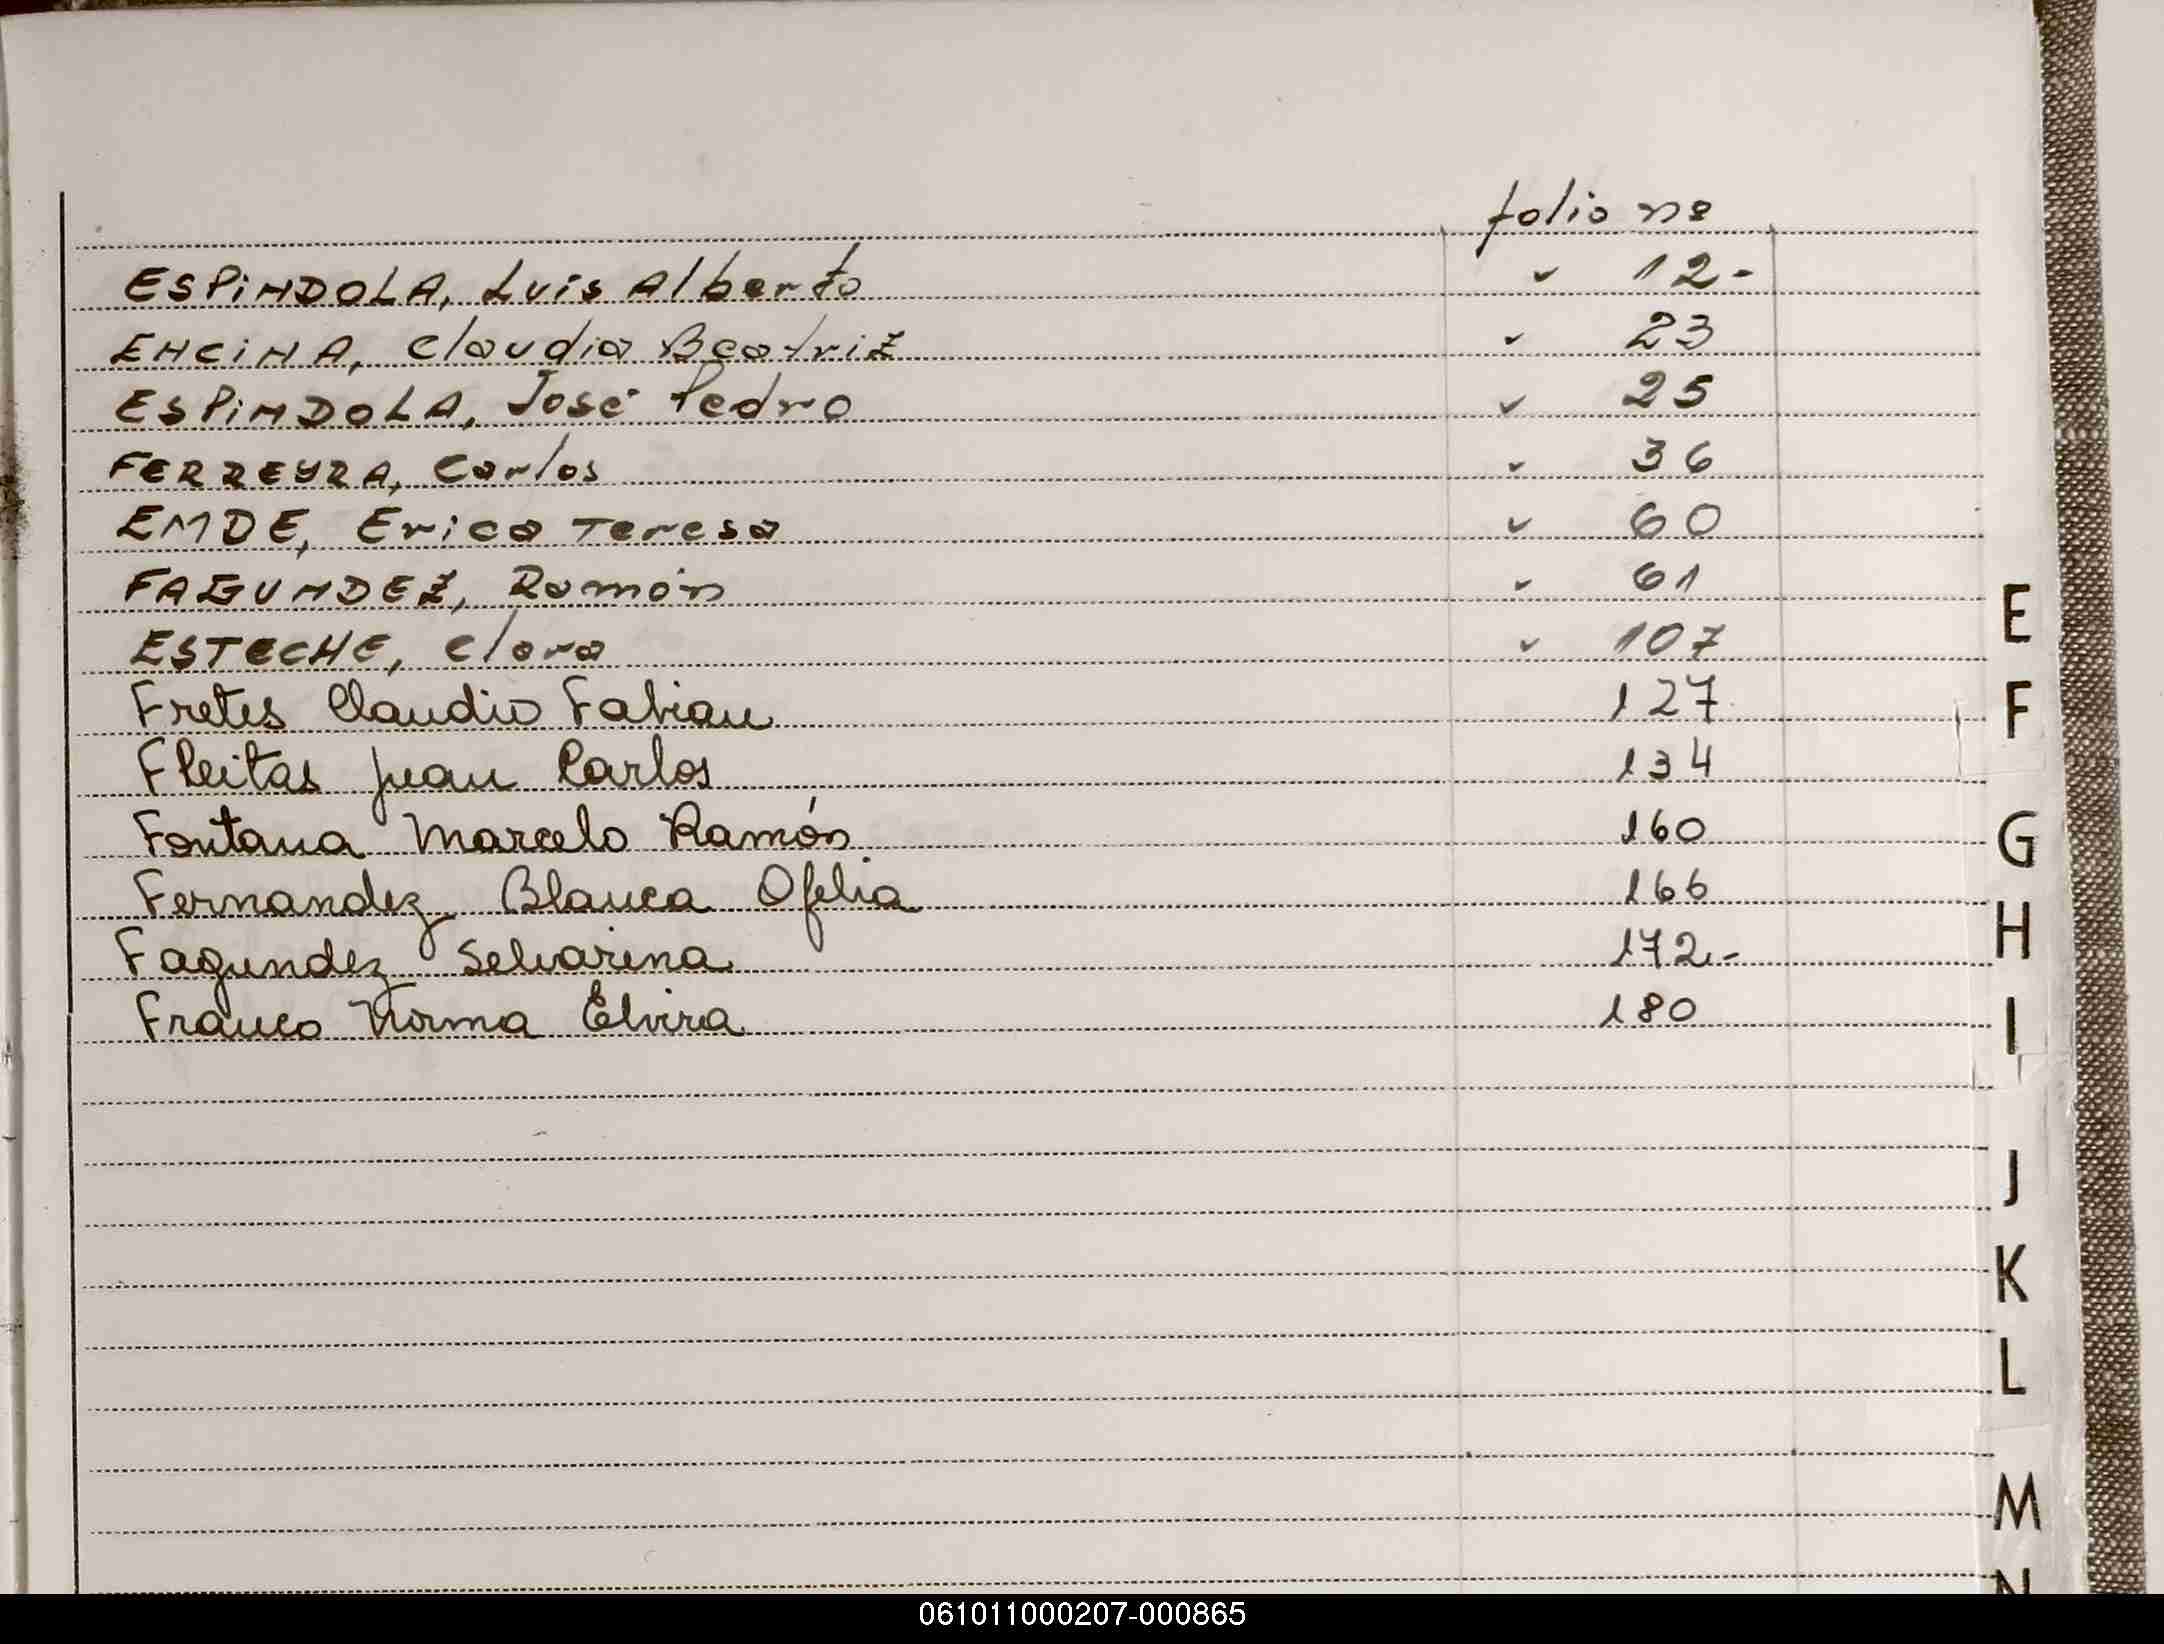 folio nº
ESPINDOLA, Luis Alberto ✓ 12-
ENCINA, Claudia Beatriz ✓ 23
ESPINDOLA, José Pedro ✓ 25
FERREYRA, Carlos ✓ 36
EMDE, Erica Teresa ✓ 60
FAGUNDEZ, Ramón ✓ 61
ESTECHE, Clara ✓ 107
Fretes Claudio Fabian 127
Fleitas Juan Carlos 134
Fontana Marcelo Ramón 160
Fernandez Blanca Ofelia 166
Fagundez Selvarina 172.-
Franco Norma Elvira 180
E
F
G
H
I
J
K
L
M
N
061011000207-000865